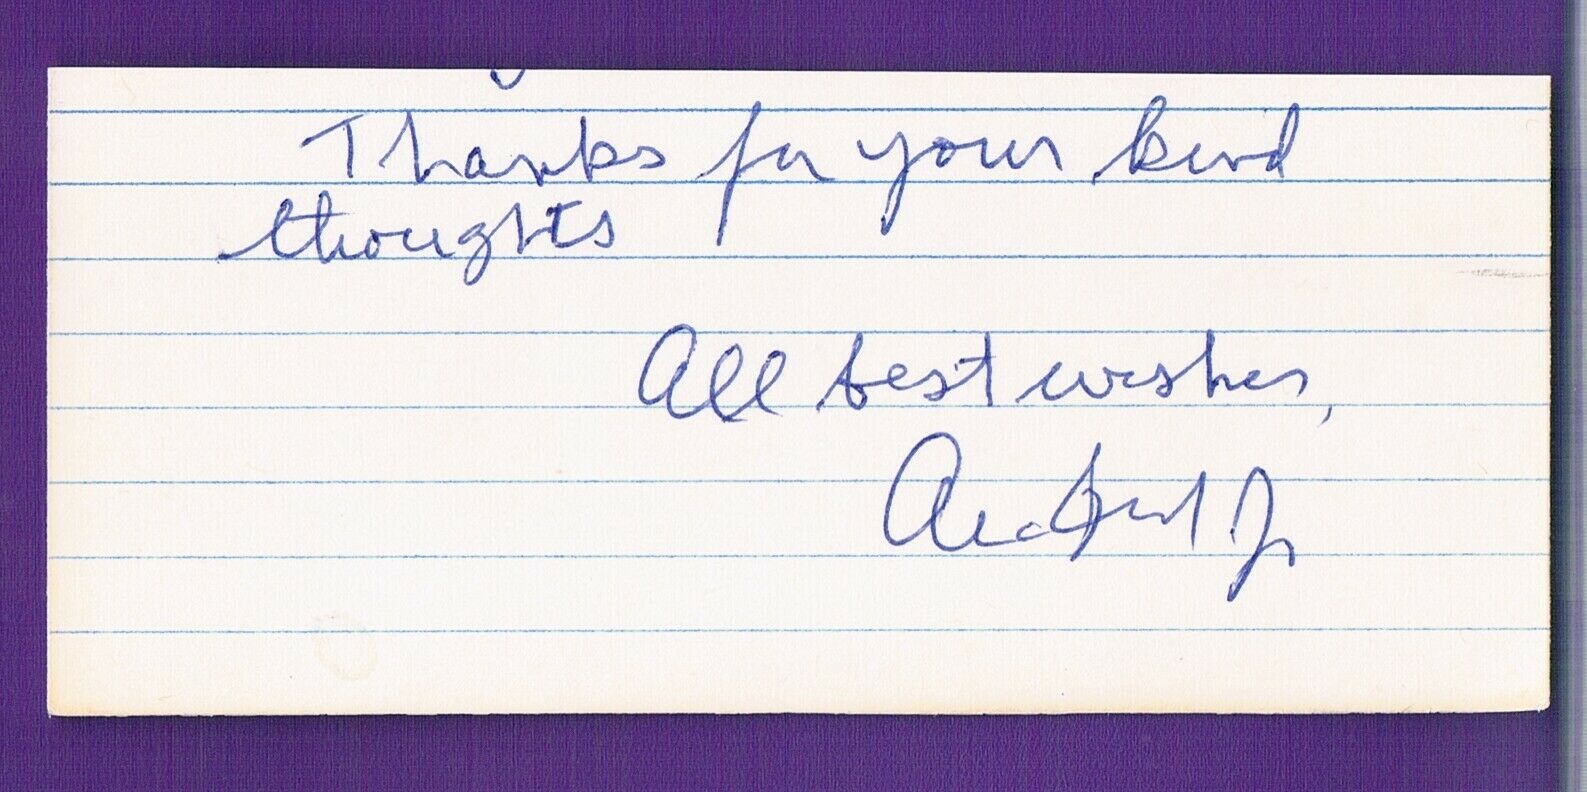 Thanks for your kind
thoughts
All best wishes,
Jr